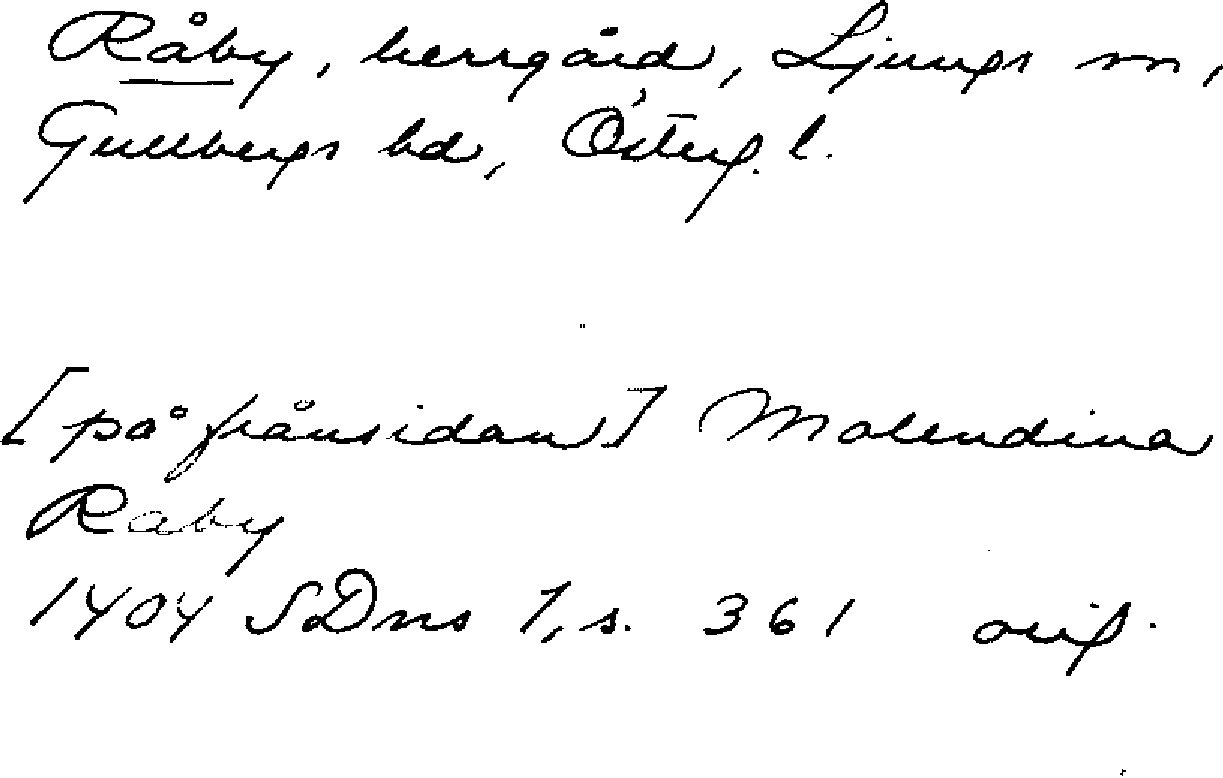 Råby, herrgård, Ljungs sn,
Gullbergs hd, Österg. l.
[på frånsidan] Molendina
Raby
1404 SDns 1, s. 361 orig.